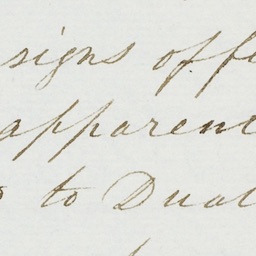 signs off
apparent
to Dual